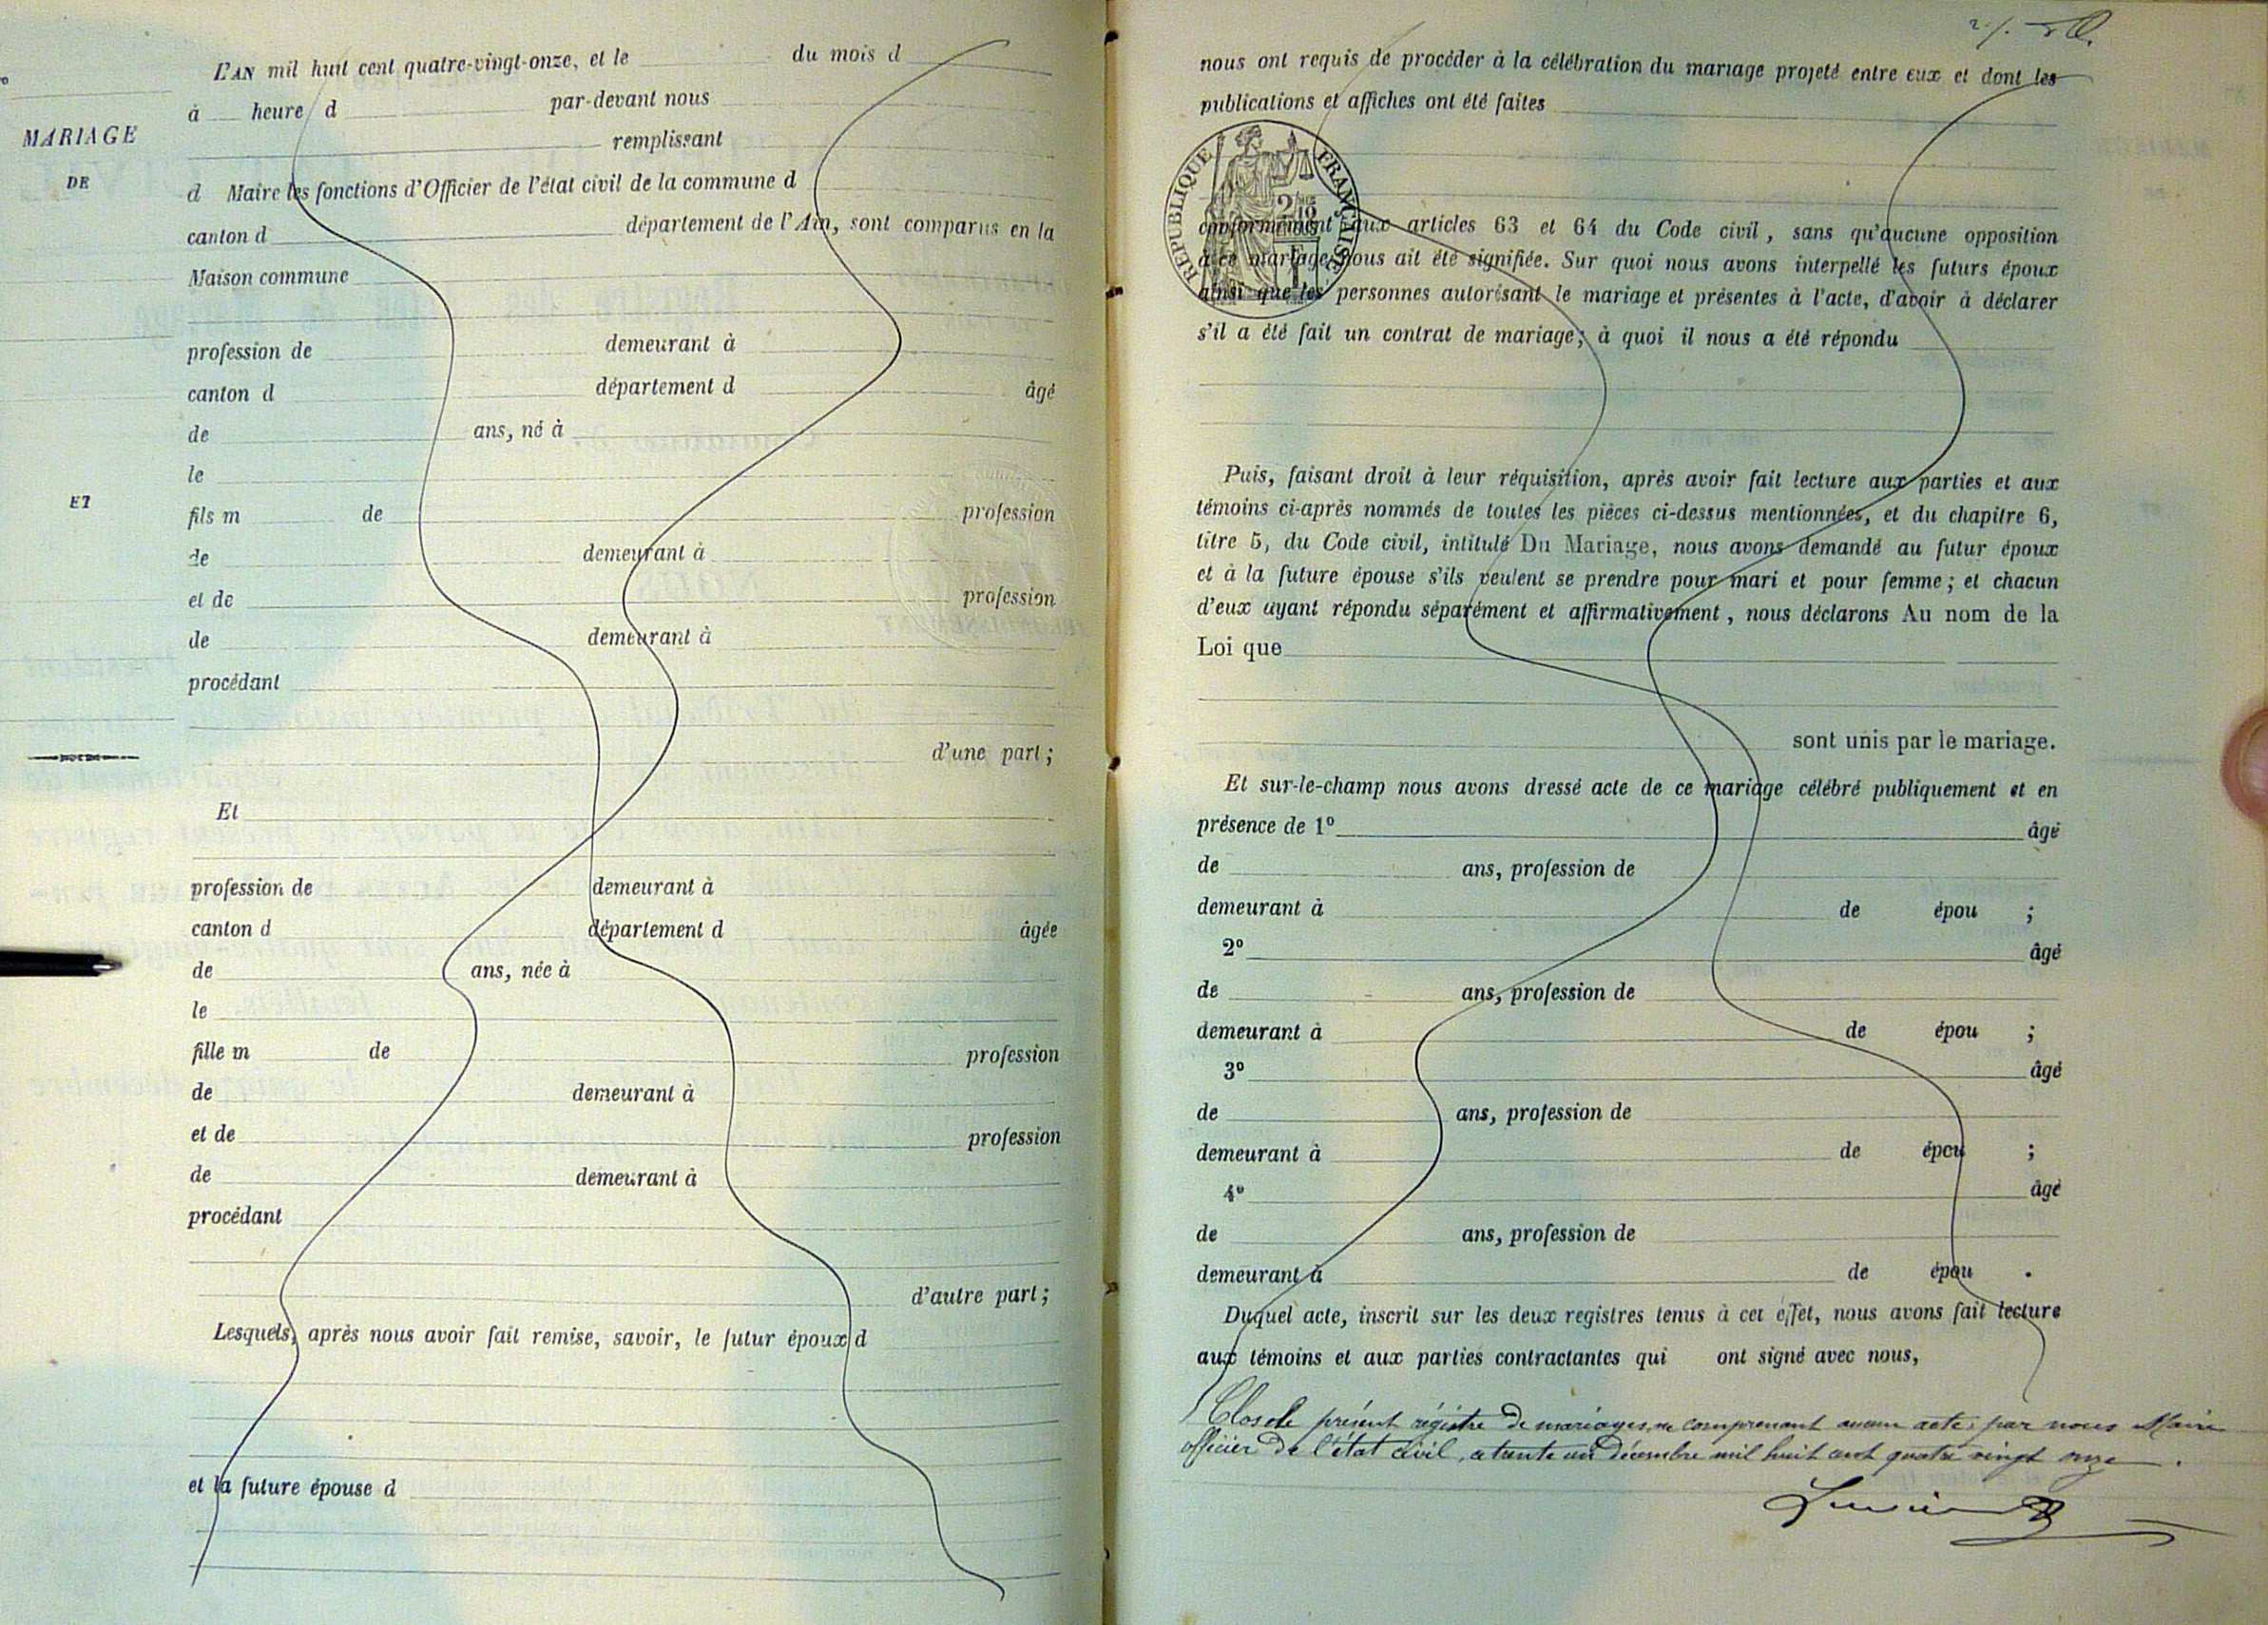 L'AN mil huit cent quatre-vingt-onze, et le du mois d
à heure d par-devant nous
remplissant
d Maire les fonctions d'Officier de l'état civil de la commune d
canton d département de l'Ain, sont comparus en la
Maison commune
profession de demeurant à
canton d département d âgé
de ans, né à
le
fils m de profession
de demeurant à
et de profession
de demeurant à
procédant
d'une part ;
Et
profession de demeurant à
canton d département d âgée
de ans, née à
le
fille m de profession
de demeurant à
et de profession
de demeurant à
procédant
d'autre part ;
Lesquels, après nous avoir fait remise, savoir, le futur époux d
et la future épouse d
MARIAGE
DE
ET
nous ont requis de procéder à la célébration du mariage projeté entre eux et dont les
publications et affiches ont été faites
RÉPUBLIQUE FRANÇAISE
conformément aux articles 63 et 64 du Code civil, sans qu'aucune opposition
à ce mariage nous ait été signifiée. Sur quoi nous avons interpellé les futurs époux
ainsi que les personnes autorisant le mariage et présentes à l'acte, d'avoir à déclarer
s'il a été fait un contrat de mariage ; à quoi il nous a été répondu
Puis, faisant droit à leur réquisition, après avoir fait lecture aux parties et aux
témoins ci-après nommés de toutes les pièces ci-dessus mentionnées, et du chapitre 6,
titre 5, du Code civil, intitulé Du Mariage, nous avons demandé au futur époux
et à la future épouse s'ils veulent se prendre pour mari et pour femme ; et chacun
d'eux ayant répondu séparément et affirmativement, nous déclarons Au nom de la
Loi que
sont unis par le mariage.
Et sur-le-champ nous avons dressé acte de ce mariage célébré publiquement et en
présence de 1º âgé
de ans, profession de
demeurant à de épou ;
2º âgé
de ans, profession de
demeurant à de épou ;
3º âgé
de ans, profession de
demeurant à de épou ;
4º âgé
de ans, profession de
demeurant à de épou .
Duquel acte, inscrit sur les deux registres tenus à cet effet, nous avons fait lecture
aux témoins et aux parties contractantes qui ont signé avec nous,
Clos le présent régistre de mariages, ne comprenant aucun acte, par nous Maire
officier de l'état civil, a trente un décembre mil huit cent quatre vingt onze.